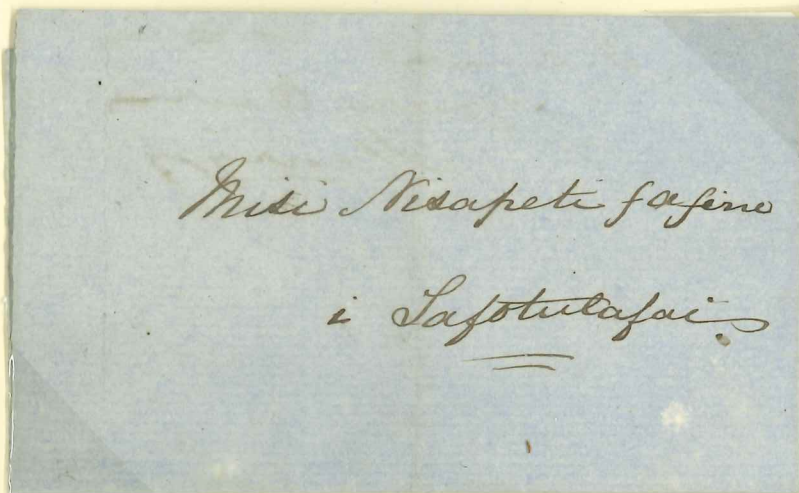 Misi Nisapeti fafine
i Safotulafai